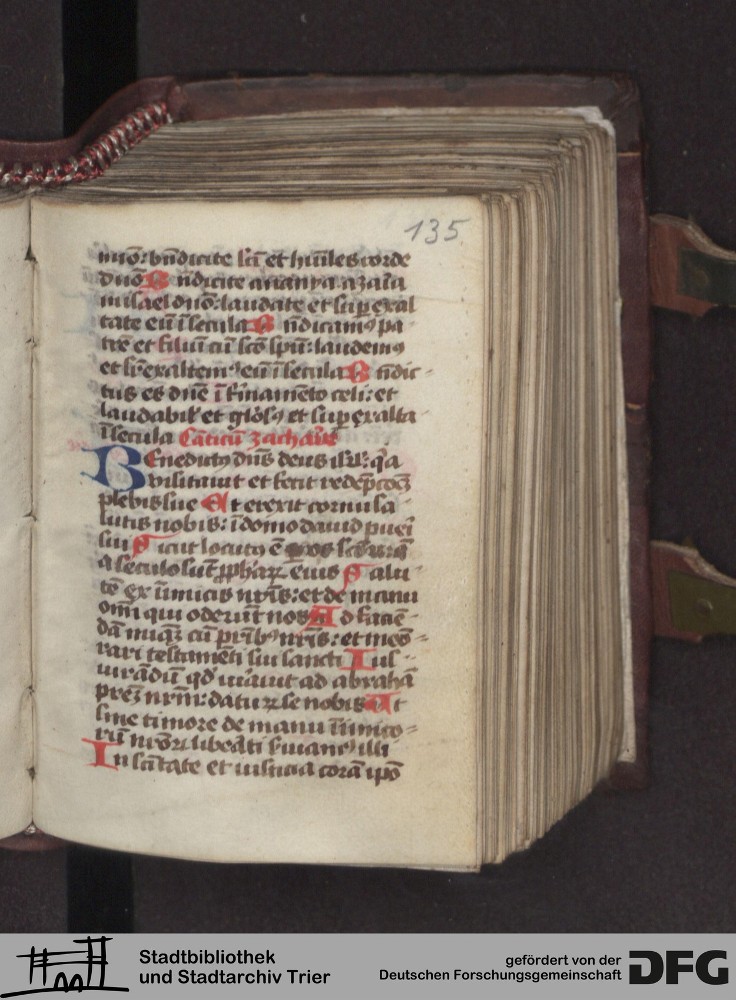 135
mino: bn̄dicite sc̄i et hūiles corde
dn̄o Bn̄dicite anania azaria
misael dn̄o: laudate et superexal
tate eū ī secula Bn̄dicamꝰ pa
trē et filiū cū scō spū: laudemꝰ
et suꝑexaltemꝰ eū ī secula Bn̄dic-
tus es dn̄e ī firmamēto celi: et
laudabil' et gl'osꝰ et superexalta-
ī secula Cāticū zacharie
Benedictꝰ dn̄s deus isrl': q̄a
visitauit et fecit redēpcōꝫ
plebis sue Et erexit cornu sa
lutis nobis: ī domo dauid pueri
sui Sicut locutꝰ ē
a seculo sūt ꝓphaꝝ eius Salu-
tē ex inimicis nr̄is: et de manu
oīm qui oderūt nos Ad faciē-
dā mīaꝫ cū pr̄ibꝰ nr̄is: et memo-
rari testamēti sui sancti Ius-
iurādū qd' iurauit ad abrahā
preꝫ nrm̄: daturꝝ se nobis Ut
sine timore de manu inimico-
rū nr̄oꝝ liberati s'uiamꝰ illi
In sc̄itate et iusticia corā ip̄o
Stadtbibliothek
und Stadtarchiv Trier
gefördert von der
Deutschen Forschungsgemeinschaft
DFG